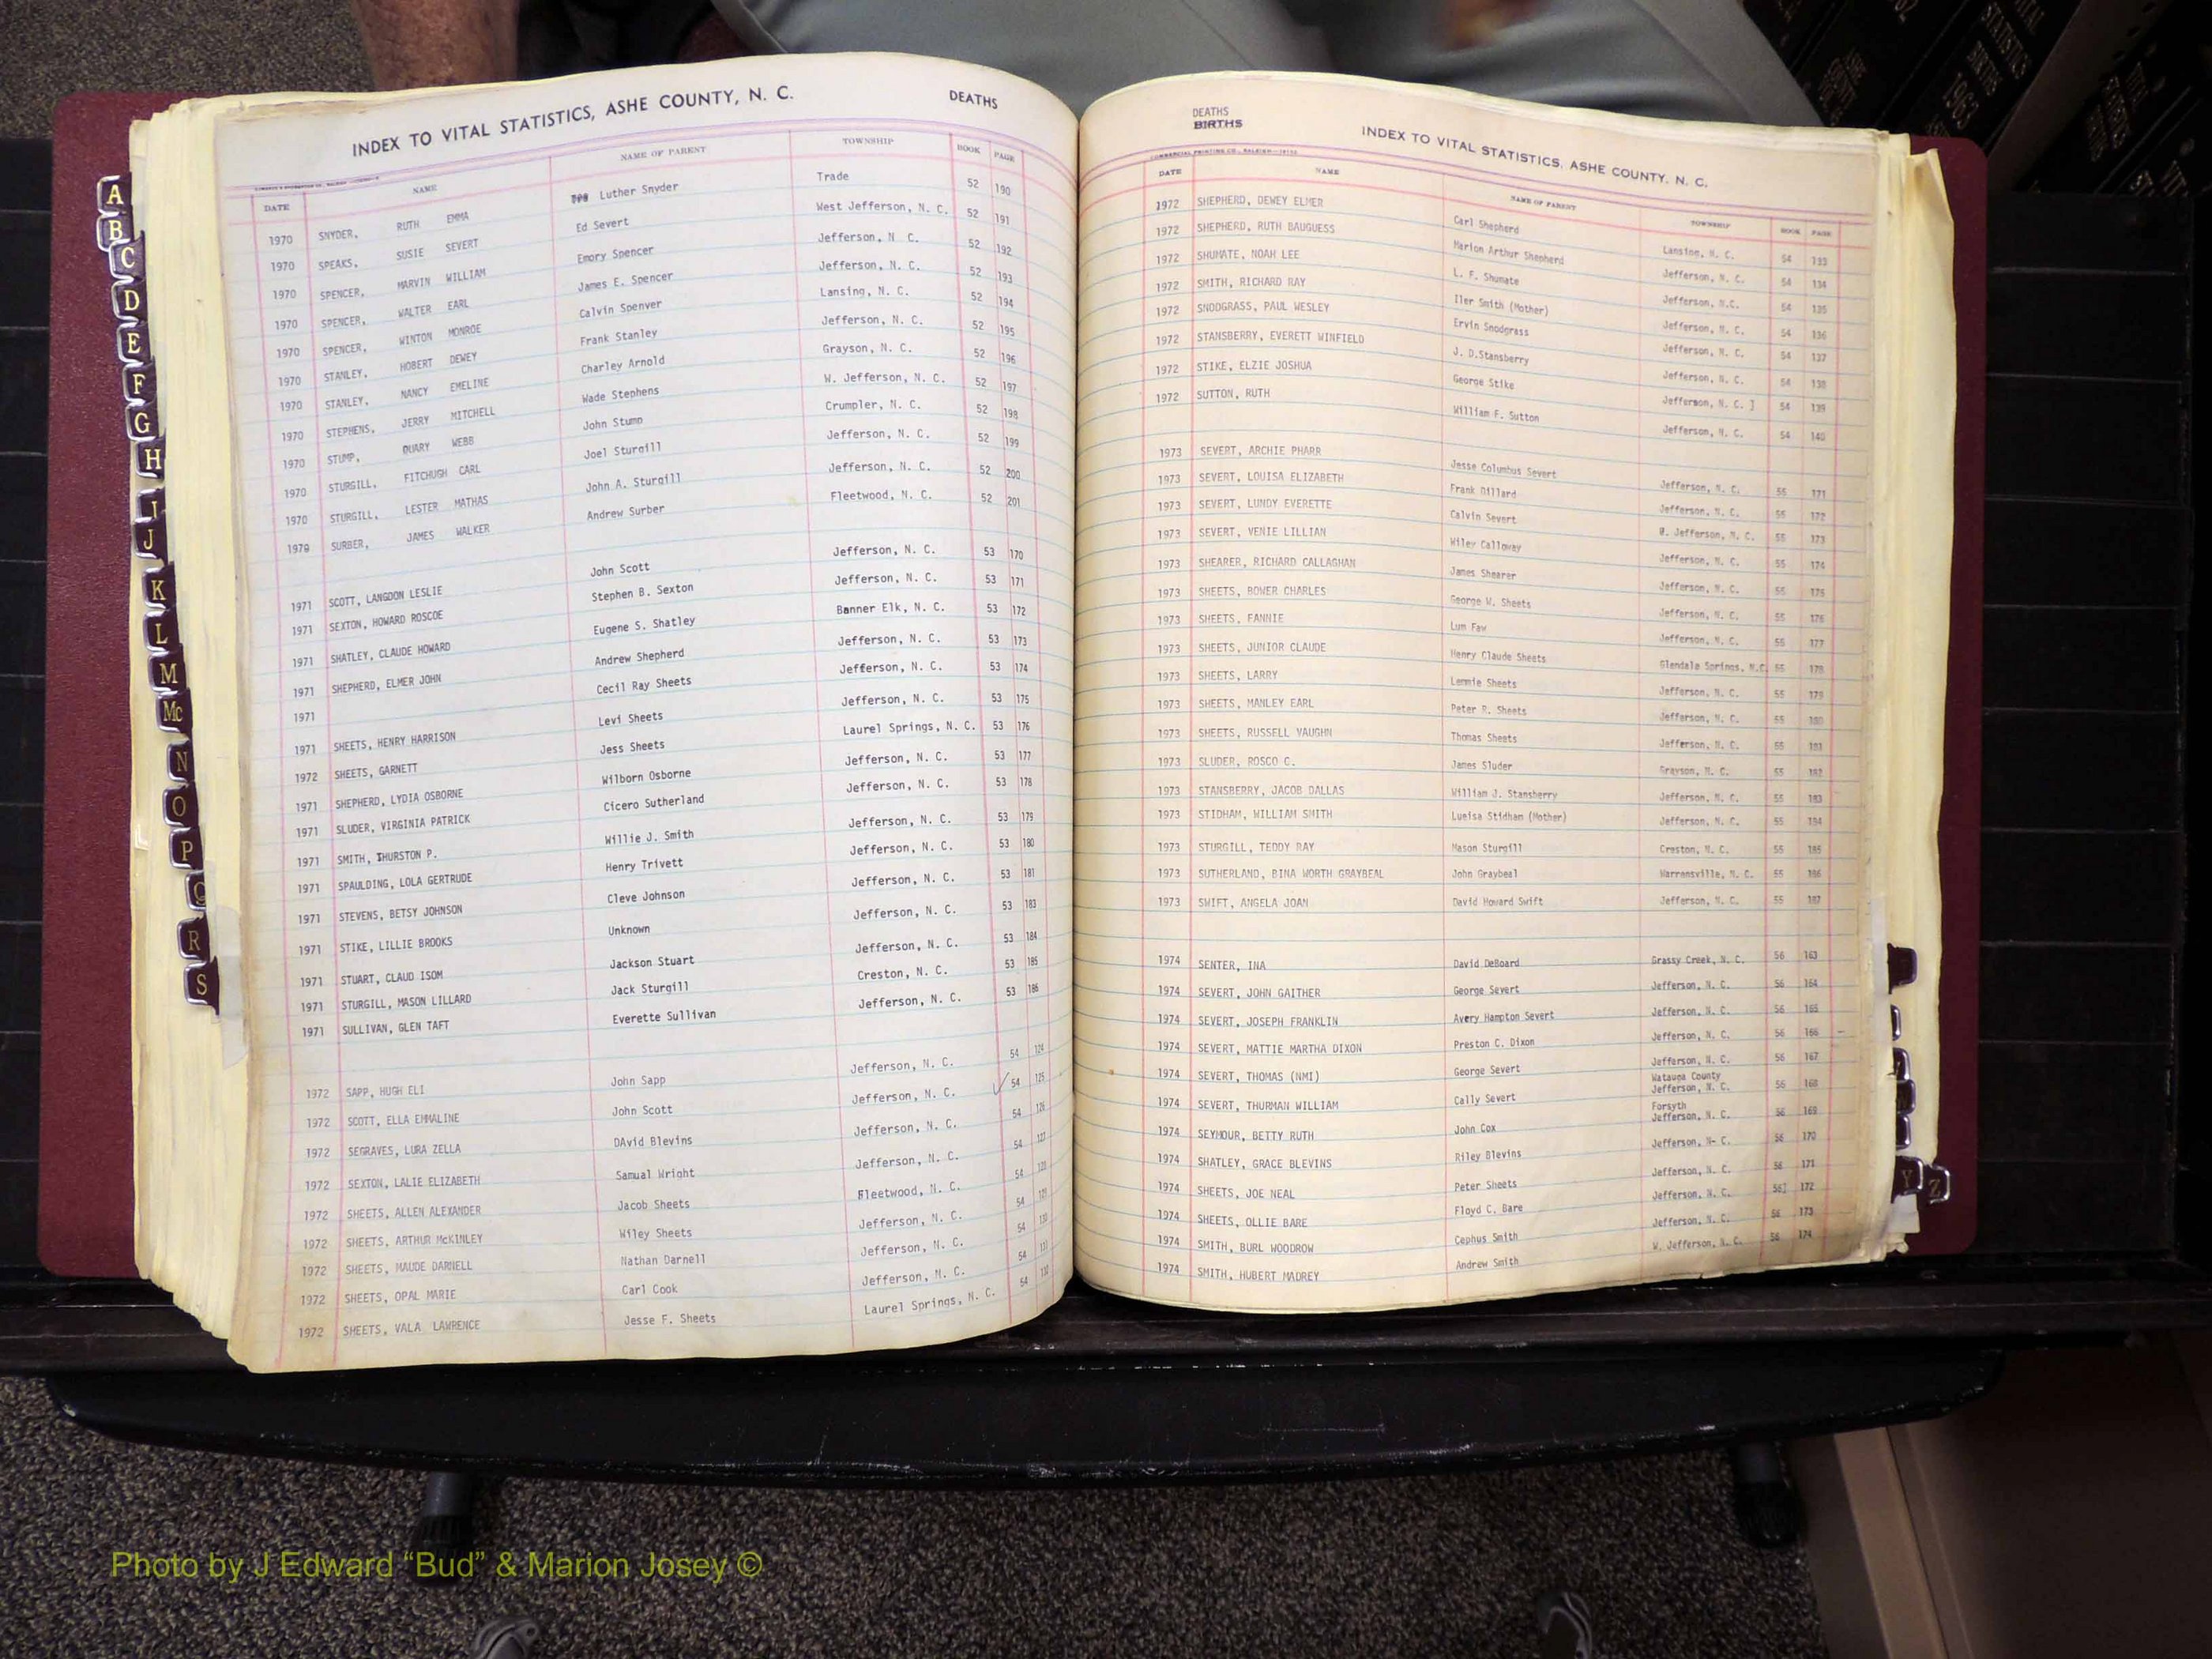 INDEX TO VITAL STATISTICS, ASHE COUNTY, N. C. DEATHS
DATE NAME NAME OF PARENT TOWNSHIP BOOK PAGE
1970 SNYDER, RUTH EMMA Luther Snyder Trade 52 190
1970 SPEAKS, SUSIE SEVERT Ed Severt West Jefferson, N. C. 52 191
1970 SPENCER, MARVIN WILLIAM Emory Spencer Jefferson, N C. 52 192
1970 SPENCER, WALTER EARL James E. Spencer Jefferson, N. C. 52 193
1970 SPENCER, WINTON MONROE Calvin Spenver Lansing, N. C. 52 194
1970 STANLEY, HOBERT DEWEY Frank Stanley Jefferson, N. C. 52 195
1970 STANLEY, NANCY EMELINE Charley Arnold Grayson, N. C. 52 196
1970 STEPHENS, JERRY MITCHELL Wade Stephens W. Jefferson, N. C. 52 197
1970 STUMP, QUARY WEBB John Stump Crumpler, N. C. 52 198
1970 STURGILL, FITCHUGH CARL Joel Sturgill Jefferson, N. C. 52 199
1970 STURGILL, LESTER MATHAS John A. Sturgill Jefferson, N. C. 52 200
1970 SURBER, JAMES WALKER Andrew Surber Fleetwood, N. C. 52 201
1971 SCOTT, LANGDON LESLIE John Scott Jefferson, N. C. 53 170
1971 SEXTON, HOWARD ROSCOE Stephen B. Sexton Jefferson, N. C. 53 171
1971 SHATLEY, CLAUDE HOWARD Eugene S. Shatley Banner Elk, N. C. 53 172
1971 SHEPHERD, ELMER JOHN Andrew Shepherd Jefferson, N. C. 53 173
1971 Cecil Ray Sheets Jefferson, N. C. 53 174
1971 SHEETS, HENRY HARRISON Levi Sheets Jefferson, N. C. 53 175
1972 SHEETS, GARNETT Jess Sheets Laurel Springs, N. C. 53 176
1971 SHEPHERD, LYDIA OSBORNE Wilborn Osborne Jefferson, N. C. 53 177
1971 SLUDER, VIRGINIA PATRICK Cicero Sutherland Jefferson, N. C. 53 178
1971 SMITH, THURSTON P. Willie J. Smith Jefferson, N. C. 53 179
1971 SPAULDING, LOLA GERTRUDE Henry Trivett Jefferson, N. C. 53 180
1971 STEVENS, BETSY JOHNSON Cleve Johnson Jefferson, N. C. 53 181
1971 STIKE, LILLIE BROOKS Unknown Jefferson, N. C. 53 183
1971 STUART, CLAUD ISOM Jackson Stuart Jefferson, N. C. 53 184
1971 STURGILL, MASON LILLARD Jack Sturgill Creston, N. C. 53 185
1971 SULLIVAN, GLEN TAFT Everette Sullivan Jefferson, N. C. 53 186
1972 SAPP, HUGH ELI John Sapp Jefferson, N. C. 54 124
1972 SCOTT, ELLA EMMALINE John Scott Jefferson, N. C. 54 125
1972 SEGRAVES, LURA ZELLA DAvid Blevins Jefferson, N. C. 54 126
1972 SEXTON, LALIE ELIZABETH Samual Wright Jefferson, N. C. 54 127
1972 SHEETS, ALLEN ALEXANDER Jacob Sheets Fleetwood, N. C. 54
1972 SHEETS, ARTHUR McKINLEY Wiley Sheets Jefferson, N. C. 54
1972 SHEETS, MAUDE DARNELL Nathan Darnell Jefferson, N. C. 54
1972 SHEETS, OPAL MARIE Carl Cook Jefferson, N. C. 54
1972 SHEETS, VALA LAWRENCE Jesse F. Sheets Laurel Springs, N. C. 54
DEATHS
BIRTHS
INDEX TO VITAL STATISTICS. ASHE COUNTY. N. C.
DATE NAME NAME OF PARENT TOWNSHIP BOOK PAGE
1972 SHEPHERD, DEWEY ELMER Carl Shepherd Lansing, N. C. 54 133
1972 SHEPHERD, RUTH BAUGUESS Marion Arthur Shepherd Jefferson, N. C. 54 134
1972 SHUMATE, NOAH LEE L. F. Shumate Jefferson, N.C. 54 135
1972 SMITH, RICHARD RAY Iler Smith (Mother) Jefferson, N. C. 54 136
1972 SNODGRASS, PAUL WESLEY Ervin Snodgrass Jefferson, N. C. 54 137
1972 STANSBERRY, EVERETT WINFIELD J. D.Stansberry Jefferson, N. C. 54 138
1972 STIKE, ELZIE JOSHUA George Stike Jefferson, N. C. ] 54 139
1972 SUTTON, RUTH William F. Sutton Jefferson, N. C. 54 140
1973 SEVERT, ARCHIE PHARR Jesse Columbus Severt Jefferson, N. C. 55 171
1973 SEVERT, LOUISA ELIZABETH Frank Dillard Jefferson, N. C. 55 172
1973 SEVERT, LUNDY EVERETTE Calvin Severt W. Jefferson, N. C. 55 173
1973 SEVERT, VENIE LILLIAN Wiley Calloway Jefferson, N. C. 55 174
1973 SHEARER, RICHARD CALLAGHAN James Shearer Jefferson, N. C. 55 175
1973 SHEETS, BOWER CHARLES George W. Sheets Jefferson, N. C. 55 176
1973 SHEETS, FANNIE Lum Faw Jefferson, N. C. 55 177
1973 SHEETS, JUNIOR CLAUDE Henry Claude Sheets Glendale Springs, N.C. 55 178
1973 SHEETS, LARRY Lennie Sheets Jefferson, N. C. 55 179
1973 SHEETS, MANLEY EARL Peter R. Sheets Jefferson, N. C. 55 180
1973 SHEETS, RUSSELL VAUGHN Thomas Sheets Jefferson, N. C. 55 181
1973 SLUDER, ROSCO C. James Sluder Grayson, N. C. 55 182
1973 STANSBERRY, JACOB DALLAS William J. Stansberry Jefferson, N. C. 55 183
1973 STIDHAM, WILLIAM SMITH Lueisa Stidham (Mother) Jefferson, N. C. 55 184
1973 STURGILL, TEDDY RAY Mason Sturgill Creston, N. C. 55 185
1973 SUTHERLAND, BINA WORTH GRAYBEAL John Graybeal Warrensville, N. C. 55 186
1973 SWIFT, ANGELA JOAN David Howard Swift Jefferson, N. C. 55 187
1974 SENTER, INA David DeBoard Grassy Creek, N. C. 56 163
1974 SEVERT, JOHN GAITHER George Severt Jefferson, N. C. 56 164
1974 SEVERT, JOSEPH FRANKLIN Avery Hampton Severt Jefferson, N. C. 56 165
1974 SEVERT, MATTIE MARTHA DIXON Preston C. Dixon Jefferson, N. C. 56 166
1974 SEVERT, THOMAS (NMI) George Severt Jefferson, N. C. 56 167
1974 SEVERT, THURMAN WILLIAM Cally Severt Watauga County Jefferson, N. C. 56 168
1974 SEYMOUR, BETTY RUTH John Cox Forsyth Jefferson, N. C. 56 169
1974 SHATLEY, GRACE BLEVINS Riley Blevins Jefferson, N- C. 56 170
1974 SHEETS, JOE NEAL Peter Sheets Jefferson, N. C. 56 171
1974 SHEETS, OLLIE BARE Floyd C. Bare Jefferson, N. C. 56] 172
1974 SMITH, BURL WOODROW Cephus Smith Jefferson, N. C. 56 173
1974 SMITH, HUBERT MADREY Andrew Smith W. Jefferson, N. C. 56 174
A
B
C
D
E
F
G
H
I
J
K
L
M
Mc
N
O
P
R
S
Y
Z
VITAL STATISTICS BIRTHS 1963
Photo by J Edward “Bud” & Marion Josey ©